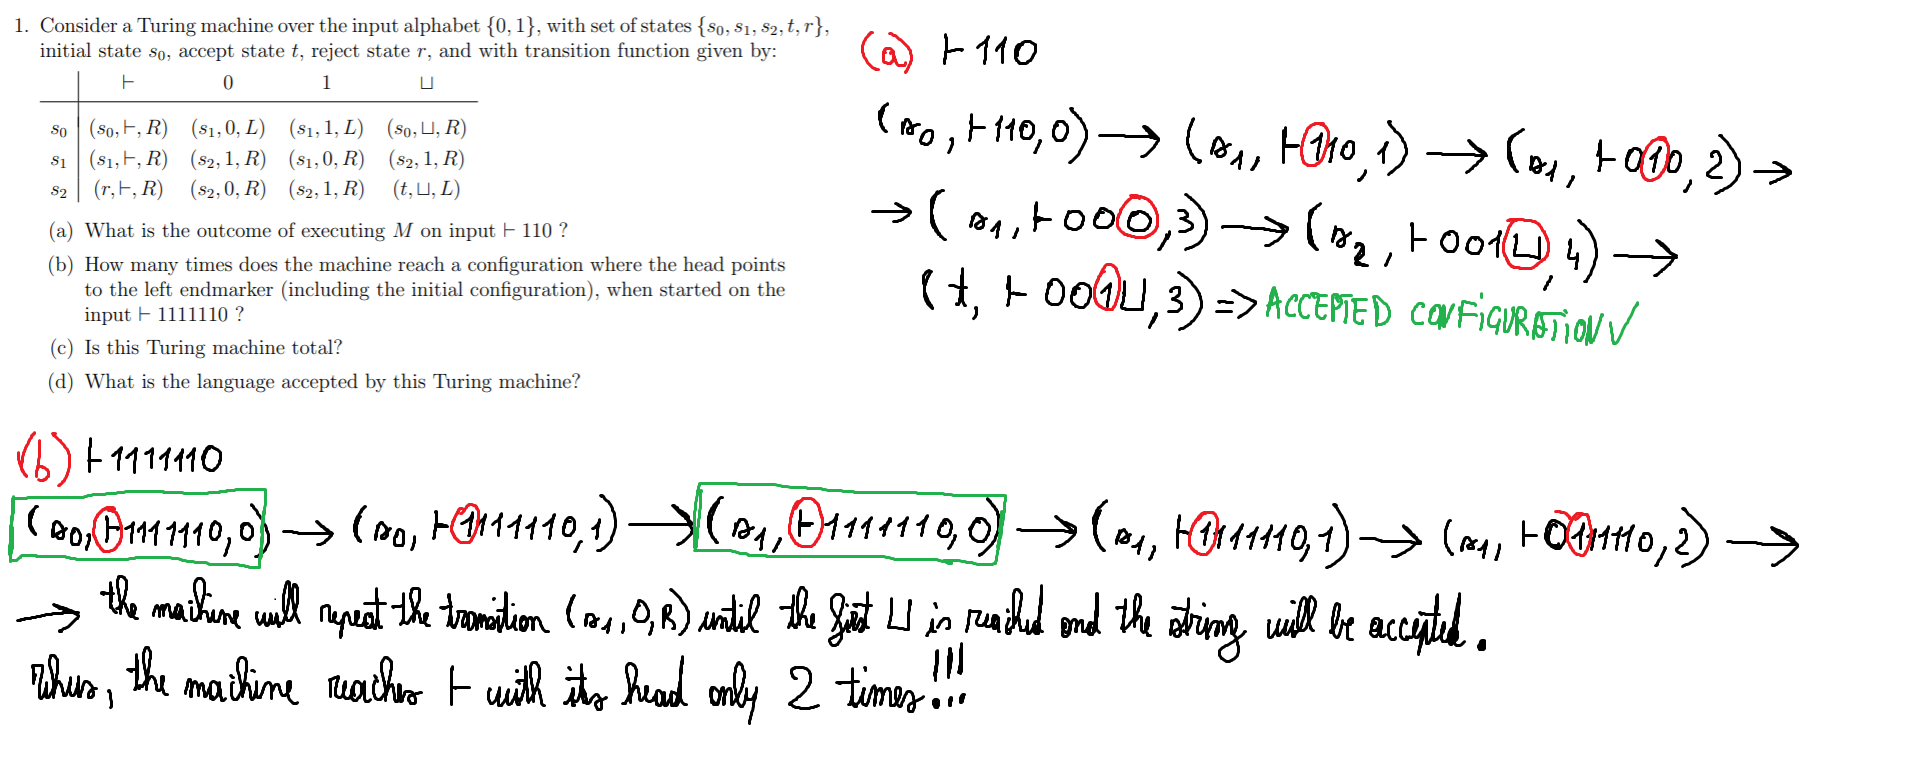 1. Consider a Turing machine over the input alphabet {0, 1}, with set of states {s₀, s₁, s₂, t, r},
initial state s₀, accept state t, reject state r, and with transition function given by:
⊢ 0 1 ⊔
s₀ (s₀, ⊢, R) (s₁, 0, L) (s₁, 1, L) (s₀, ⊔, R)
s₁ (s₁, ⊢, R) (s₂, 1, R) (s₁, 0, R) (s₂, 1, R)
s₂ (r, ⊢, R) (s₂, 0, R) (s₂, 1, R) (t, ⊔, L)
(a) What is the outcome of executing M on input ⊢ 110 ?
(b) How many times does the machine reach a configuration where the head points
to the left endmarker (including the initial configuration), when started on the
input ⊢ 1111110 ?
(c) Is this Turing machine total?
(d) What is the language accepted by this Turing machine?
(a) ⊢110
(s₀, ⊢110, 0) → (s₁, ⊢110, 1) → (s₁, ⊢010, 2) →
→ (s₁, ⊢000, 3) → (s₂, ⊢001⊔, 4) →
(t, ⊢001⊔, 3) => ACCEPTED CONFIGURATION ✓
(b) ⊢1111110
(s₀, ⊢1111110, 0) → (s₀, ⊢1111110, 1) → (s₁, ⊢1111110, 0) → (s₁, ⊢1111110, 1) → (s₁, ⊢011110, 2) →
→ the machine will repeat the transition (s₁, 0, R) until the first ⊔ is reached and the string will be accepted.
Thus, the machine reaches ⊢ with its head only 2 times...!!!